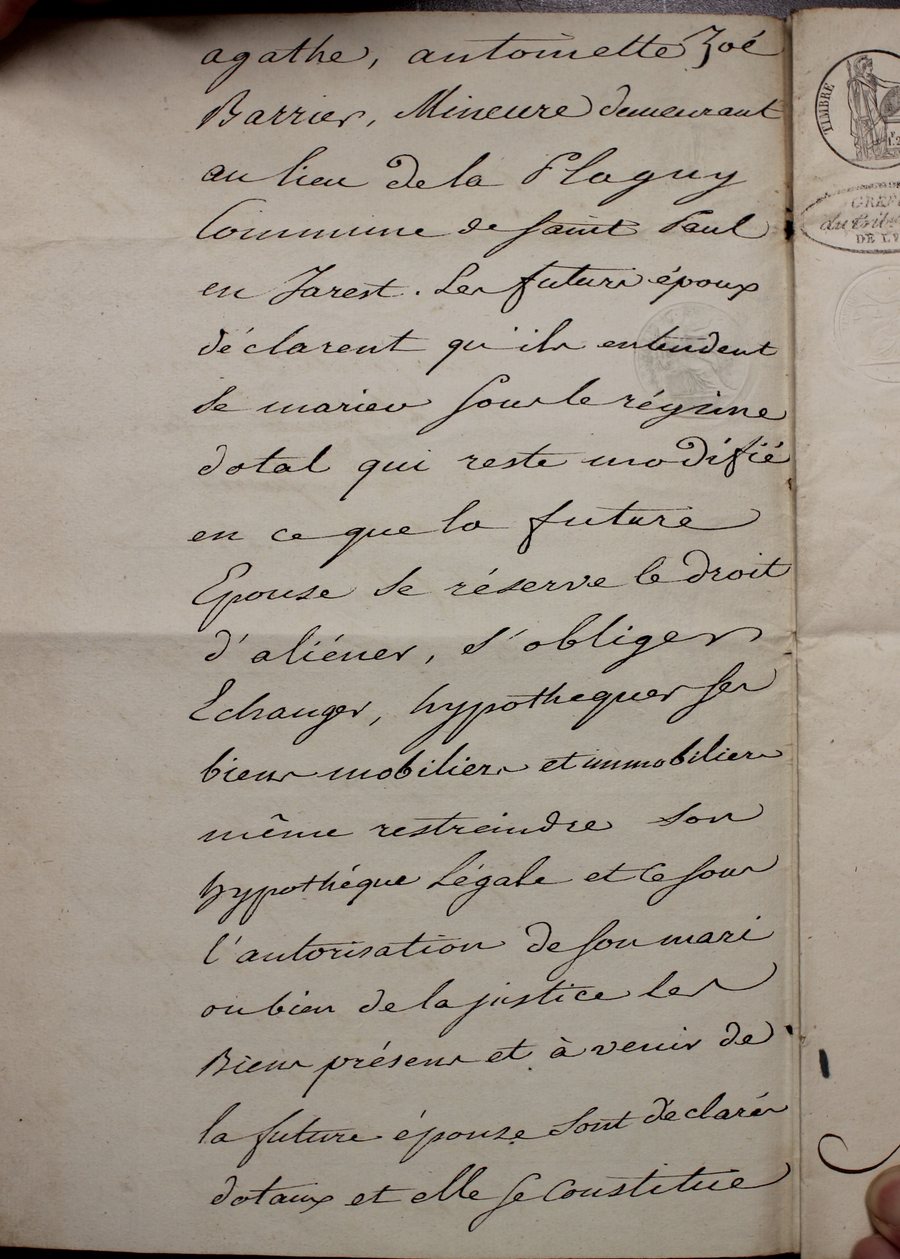 agathe, antoinette Zoé
Barrier, Mineure demeurant
au lieu de la Flaguy
Commune de Saint Paul
en Jarest. Les futurs époux
déclarent qu'ils entendent
se marier sous le régime
dotal qui reste modifié
en ce que la future
Epouse se réserve le droit
d'aliéner, s'obliger
Echanger, hypothequer ses
biens mobiliers et immobiliers
même restreindre son
hypothéque Légale et ce sous
l'autorisation de son mari
ou bien de la justice les
Biens présens et à venir de
la future épouse sont déclarés
dotaux et elle se constitue
TIMBRE
GREF
DE L'